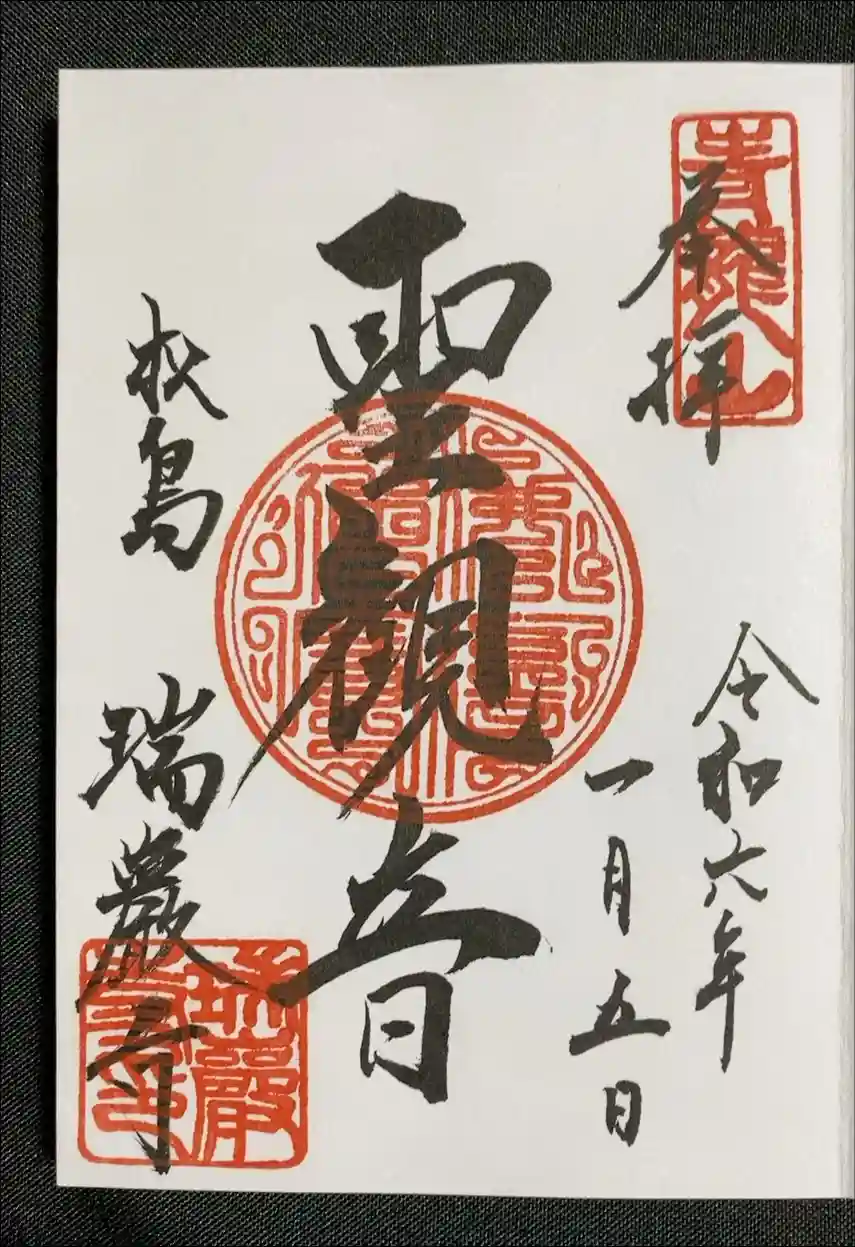 奉拝
令和六年
一月五日
聖觀音
松島 瑞巌寺
瑞巌